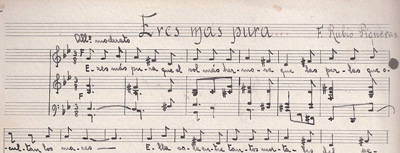 Eres mas pura...
F. Rubio Piqueras
All.º moderato
F
E-res más pu-ra que el sol más her-mo-sa que las per-las que o-
F
cul-tan los ma-res
E-lla so-la en-tre tan-tos mor-ta-les del